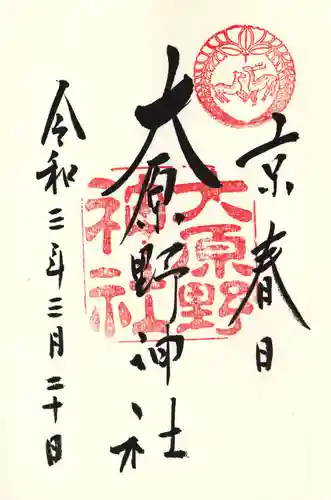 京春日
大原野神社
令和三年三月二十日
大原野
神社